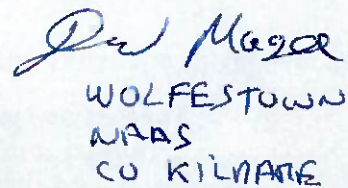 Magee
WOLFESTOWN
NAAS
CO KILDARE